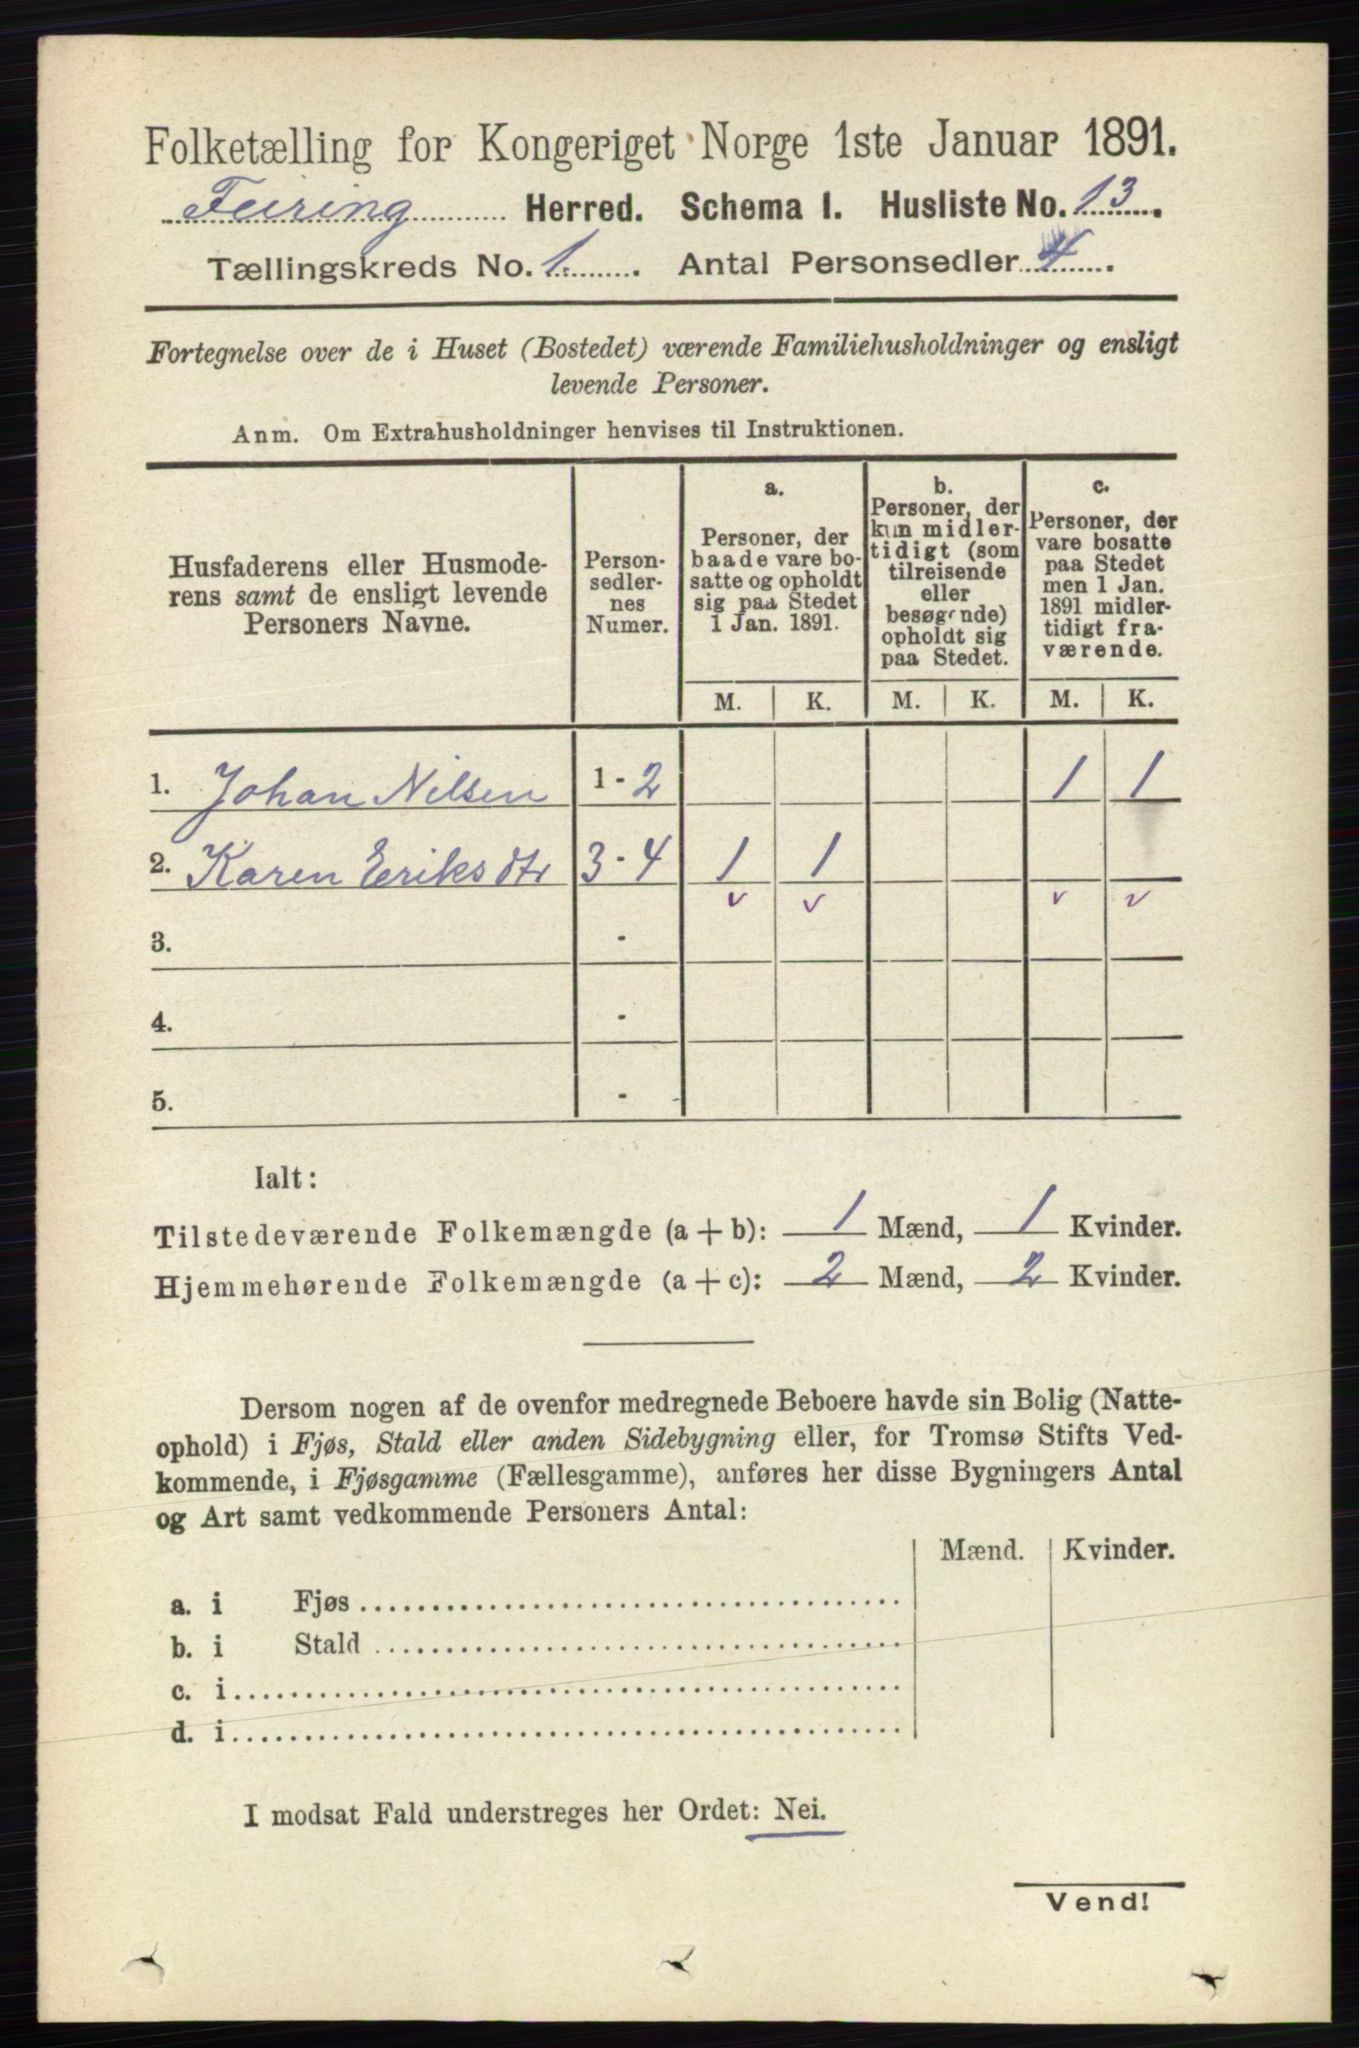 Folketælling for Kongeriget Norge 1ste Januar 1891.
Feiring Herred. Schema I. Husliste No. 13.
Tællingskreds No. 1. Antal Personsedler 4.
Fortegnelse over de i Huset (Bostedet) værende Familiehusholdninger og ensligt
levende Personer.
Anm. Om Extrahusholdninger henvises til Instruktionen.
Husfaderens eller Husmode-
rens samt de ensligt levende
Personers Navne.
Person-
sedler-
nes
Numer.
a.
Personer, der
baade vare bo-
satte og opholdt
sig paa Stedet
1 Jan. 1891.
b.
Personer, der
kun midler-
tidigt (som
tilreisende
eller
besøgende)
opholdt sig
paa Stedet.
c.
Personer, der
vare bosatte
paa Stedet
men 1 Jan.
1891 midler-
tidigt fra-
værende.
M. K. M. K. M. K.
1. Johan Nilsen 1-2 1 1
2. Karen Eriksdtr 3-4 1 1
v v v v
3. -
4. -
5. -
Ialt:
Tilstedeværende Folkemængde (a + b): 1 Mænd, 1 Kvinder.
Hjemmehørende Folkemængde (a + c): 2 Mænd, 2 Kvinder.
Dersom nogen af de ovenfor medregnede Beboere havde sin Bolig (Natte-
ophold) i Fjøs, Stald eller anden Sidebygning eller, for Tromsø Stifts Ved-
kommende, i Fjøsgamme (Fællesgamme), anføres her disse Bygningers Antal
og Art samt vedkommende Personers Antal:
Mænd. Kvinder.
a. i Fjøs
b. i Stald
c. i
d. i
I modsat Fald understreges her Ordet: Nei.
Vend!